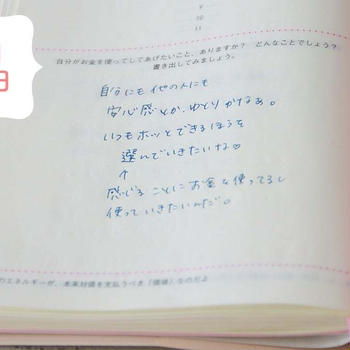 9
10
11
自分がお金を使ってしてあげたいこと、ありますか? どんなことでしょう?
書き出してみましょう。
自分にも他の人にも
安心感とか、ゆとりかなぁ。
いつもホッとできるほうを
選んでいきたいな♡
↑
感じることにお金を使ってるし
使っていきたいんだ。
のエネルギーが、本来対価を支払うべき「価値」なのだよ